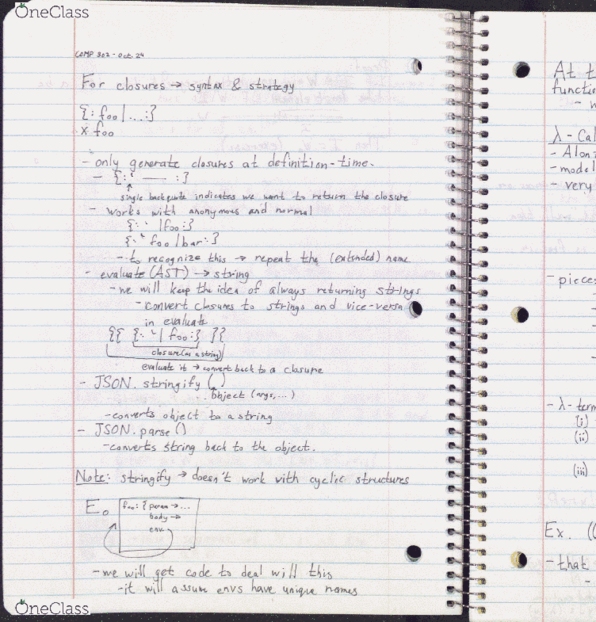 OneClass
COMP 302 - Oct. 24
For closures → syntax & strategy
{: foo | ...:}
x foo
- only generate closures at definition-time.
- {:` —— :}
single backquote indicates we want to return the closure
- works with anonymous and normal
{:` |foo:}
{:` foo |bar:}
- to recognize this → repeat the (extended) name
- evaluate (AST) → string
- we will keep the idea of always returning strings
- convert closures to strings and vice-versa
in evaluate
{{ {:` | foo:} }}
closure (as a string)
evaluate it → convert back to a closure
- JSON.stringify ( )
object (args, ...)
- converts object to a string
- JSON.parse ()
- converts string back to the object.
Note: stringify → doesn't work with cyclic structures
E₀
foo: { param → ...
body →
env
- we will get code to deal will this
- it will assume envs have unique names
OneClass
At t
functio
λ-Cal
- Alon
- model
- very
- pieces
- λ-term
(i)
(ii)
(iii)
Ex. (
- that